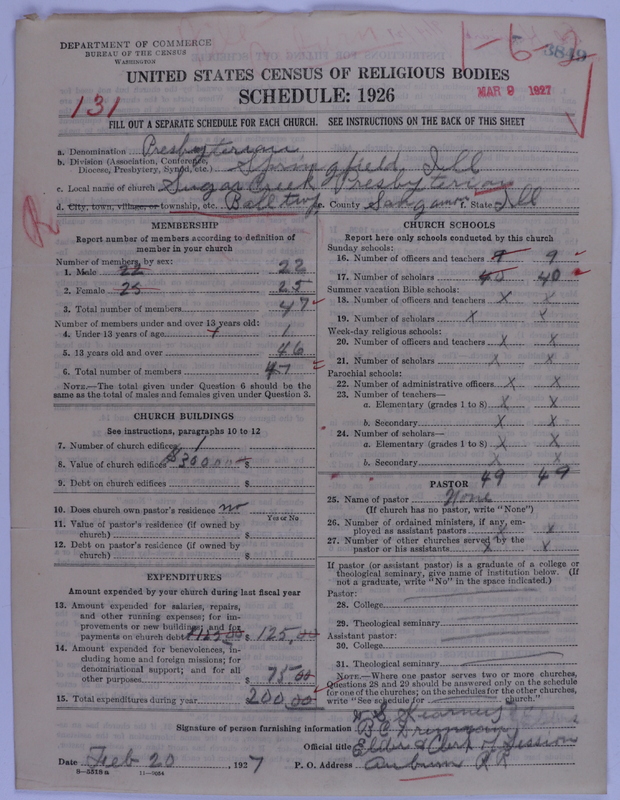 DEPARTMENT OF COMMERCE
BUREAU OF THE CENSUS
WASHINGTON
1-6-
3849
UNITED STATES CENSUS OF RELIGIOUS BODIES
SCHEDULE: 1926
131
MAR 9 1927
FILL OUT A SEPARATE SCHEDULE FOR EACH CHURCH. SEE INSTRUCTIONS ON THE BACK OF THIS SHEET
a. Denomination Presbyterian
b. Division (Association, Conference, Diocese, Presbytery, Synod, etc.) Springfield Ill
c. Local name of church Sugar Creek Presbyterian
d. City, town, village, or township, etc. Ball twp e. County Sangamon f. State Ill
MEMBERSHIP
Report number of members according to definition of
member in your church
Number of members, by sex:
1. Male 22 22
2. Female 25 25
3. Total number of members 47
Number of members under and over 13 years old:
4. Under 13 years of age 1 1
5. 13 years old and over 46
6. Total number of members 47
NOTE.—The total given under Question 6 should be the
same as the total of males and females given under Question 3.
CHURCH BUILDINGS
See instructions, paragraphs 10 to 12
7. Number of church edifices 1
8. Value of church edifices $3000 $
9. Debt on church edifices $
10. Does church own pastor's residence no
Yes or No
11. Value of pastor's residence (if owned by
church) $
12. Debt on pastor's residence (if owned by
church) $
EXPENDITURES
Amount expended by your church during last fiscal year
13. Amount expended for salaries, repairs,
and other running expenses; for im-
provements or new buildings; and for
payments on church debt $125.00 $ 125.00
14. Amount expended for benevolences, in-
cluding home and foreign missions; for
denominational support; and for all
other purposes $ 75.00
15. Total expenditures during year 200.00
CHURCH SCHOOLS
Report here only schools conducted by this church
Sunday schools:
16. Number of officers and teachers 9 9
17. Number of scholars 40 40
Summer vacation Bible schools:
18. Number of officers and teachers X X
19. Number of scholars X X
Week-day religious schools:
20. Number of officers and teachers X X
21. Number of scholars X X
Parochial schools:
22. Number of administrative officers X X
23. Number of teachers—
a. Elementary (grades 1 to 8) X X
b. Secondary X X
24. Number of scholars—
a. Elementary (grades 1 to 8) X X
b. Secondary X X
49 49
PASTOR
25. Name of pastor None
(If church has no pastor, write "None")
26. Number of ordained ministers, if any, em-
ployed as assistant pastors X X
27. Number of other churches served by the
pastor or his assistants X X
If pastor (or assistant pastor) is a graduate of a college or
theological seminary, give name of institution below. (If
not a graduate, write "No" in the space indicated.)
Pastor:
28. College
29. Theological seminary
Assistant pastor:
30. College
31. Theological seminary
NOTE.—Where one pastor serves two or more churches,
Questions 28 and 29 should be answered only on the schedule
for one of the churches; on the schedules for the other churches,
write "See schedule for church."
Signature of person furnishing information B.C.
Official title Elder & Clerk of Session
Date Feb 20, 1927 P. O. Address Auburn
8—5518 a 11—9054